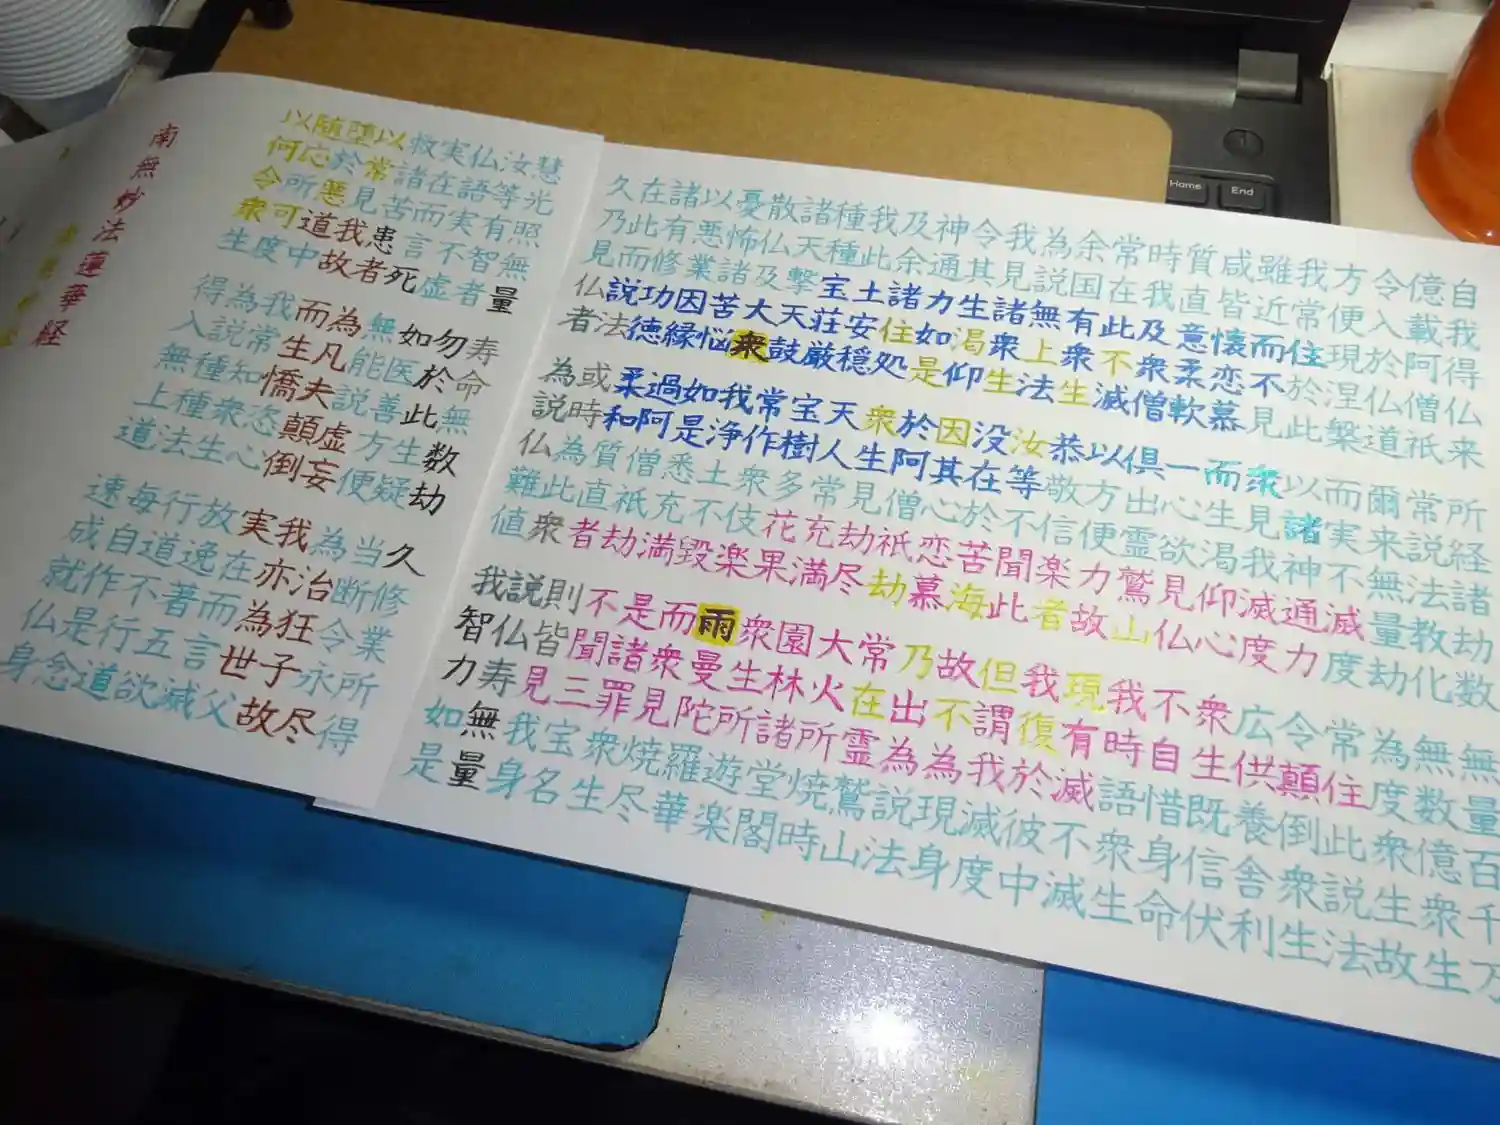 自我得仏来 所経諸劫数 無量百千万
億載阿僧祇 常説法教化 無数億衆生
令入於仏道 爾来無量劫 為度衆生故
方便現涅槃 而実不滅度 常住此説法
我常住於此 以諸神通力 令顛倒衆生
雖近而不見 衆見我滅度 広供養舎利
咸皆懐恋慕 而生渇仰心 衆生既信伏
質直意柔軟 一心欲見仏 不自惜身命
時我及衆僧 俱出霊鷲山 我時語衆生
常在此不滅 以方便力故 現有滅不滅
余国有衆生 恭敬信楽者 我復於彼中
為説無上法 汝等不聞此 但謂我滅度
我見諸衆生 没在於苦海 故為不現身
令其生渇仰 因其心恋慕 乃出為説法
神通力如是 於阿僧祇劫 常在霊鷲山
及余諸住処 衆生見劫尽 大火所焼時
我此土安穏 天人常充満 園林諸堂閣
種種宝荘厳 宝樹多花果 衆生所遊楽
諸天撃天鼓 常作衆伎楽 雨曼陀羅華
散仏及大衆 我浄土不毀 而衆見焼尽
憂怖諸苦悩 如是悉充満 是諸罪衆生
以悪業因縁 過阿僧祇劫 不聞三宝名
諸有修功徳 柔和質直者 則皆見我身
在此而説法 或時為此衆 説仏寿無量
久乃見仏者 為説仏難値 我智力如是
慧光照無量 寿命無数劫 久修業所得
汝等有智者 勿於此生疑 当断令永尽
仏語実不虚 如医善方便 為治狂子故
実在而言死 無能説虚妄 我亦為世父
救諸苦患者 為凡夫顛倒 実在而言滅
以常見我故 而生憍恣心 放逸著五欲
堕於悪道中 我常知衆生 行道不行道
随応所可度 為説種種法 毎自作是念
以何令衆生 得入無上道 速成就仏身
南無妙法蓮華経
Home
End